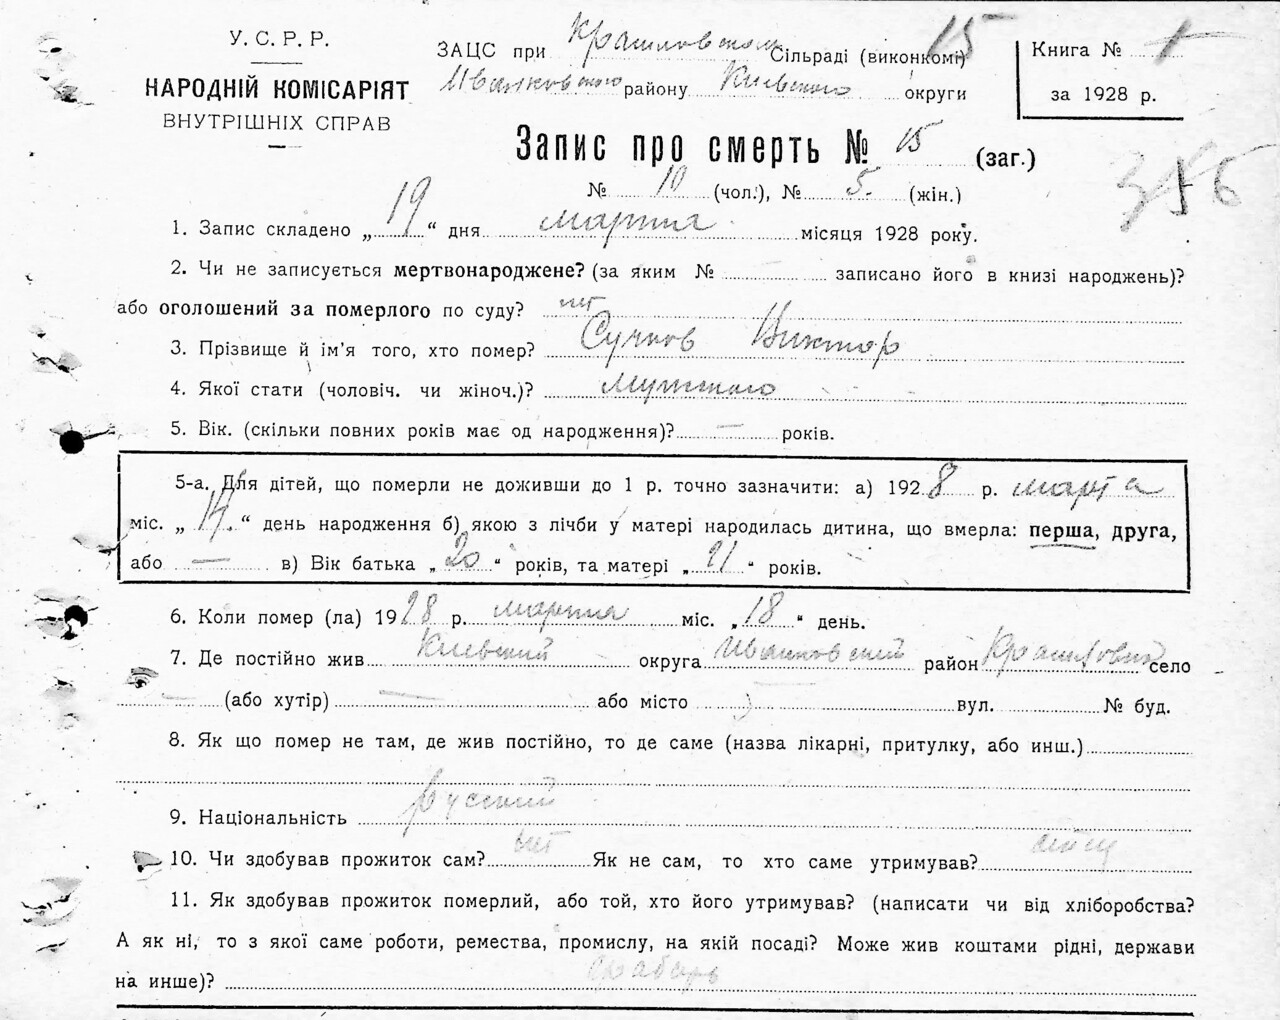 У. С. Р. Р.
НАРОДНІЙ КОМІСАРІЯТ
ВНУТРІШНІХ СПРАВ
ЗАЦС при Сільраді (виконкомі) 15
Иванковского району Киевского округи
Книга № 1
за 1928 р.
Запис про смерть № 15 (заг.)
№ 10 (чол.), № 5. (жін.)
356
1. Запис складено „ 19 “ дня марта місяця 1928 року.
2. Чи не записується мертвонароджене? (за яким № — записано його в книзі народжень)?
або оголошений за померлого по суду? нет
3. Прізвище й ім'я того, хто помер? Сучков Виктор
4. Якої стати (чоловіч. чи жіноч.)? мужского
5. Вік. (скільки повних років має од народження)? — років.
5-а. Для дітей, що померли не доживши до 1 р. точно зазначити: а) 1928 р. марта
міс. „ 14. “ день народження б) якою з лічби у матері народилась дитина, що вмерла: перша, друга,
або — в) Вік батька „ 20 “ років, та матері „ 21 “ років.
6. Коли помер (ла) 1928 р. марта міс. „ 18 “ день.
7. Де постійно жив Киевский округа Иванковский район село
— (або хутір) — або місто вул. № буд.
8. Як що помер не там, де жив постійно, то де саме (назва лікарні, притулку, або инш.)
9. Національність русский
10. Чи здобував прожиток сам? нет Як не сам, то хто саме утримував? отец
11. Як здобував прожиток померлий, або той, хто його утримував? (написати чи від хліборобства?
А як ні, то з якої саме роботи, ремества, промислу, на якій посаді? Може жив коштами рідні, держави
на инше)?